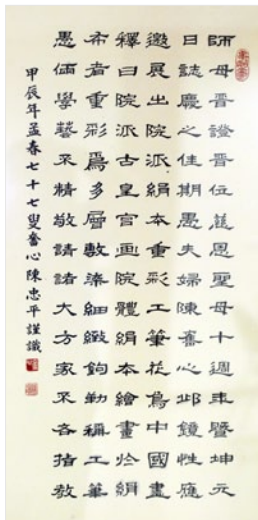 師母晋證晋位慈恩聖母十週年暨坤元
日誌慶之佳期愚夫婦陳奮心邸鏡性應
邀展出院派絹本重彩工筆花鳥中國畫
釋曰院派古皇宫画院體絹本繪畫於絹
布者重彩爲多層敷染細緻鉤勒稱工筆
愚倆學藝不精敬請諸大方家不吝指教
甲辰年孟春七十七叟奮心陳忠平謹識